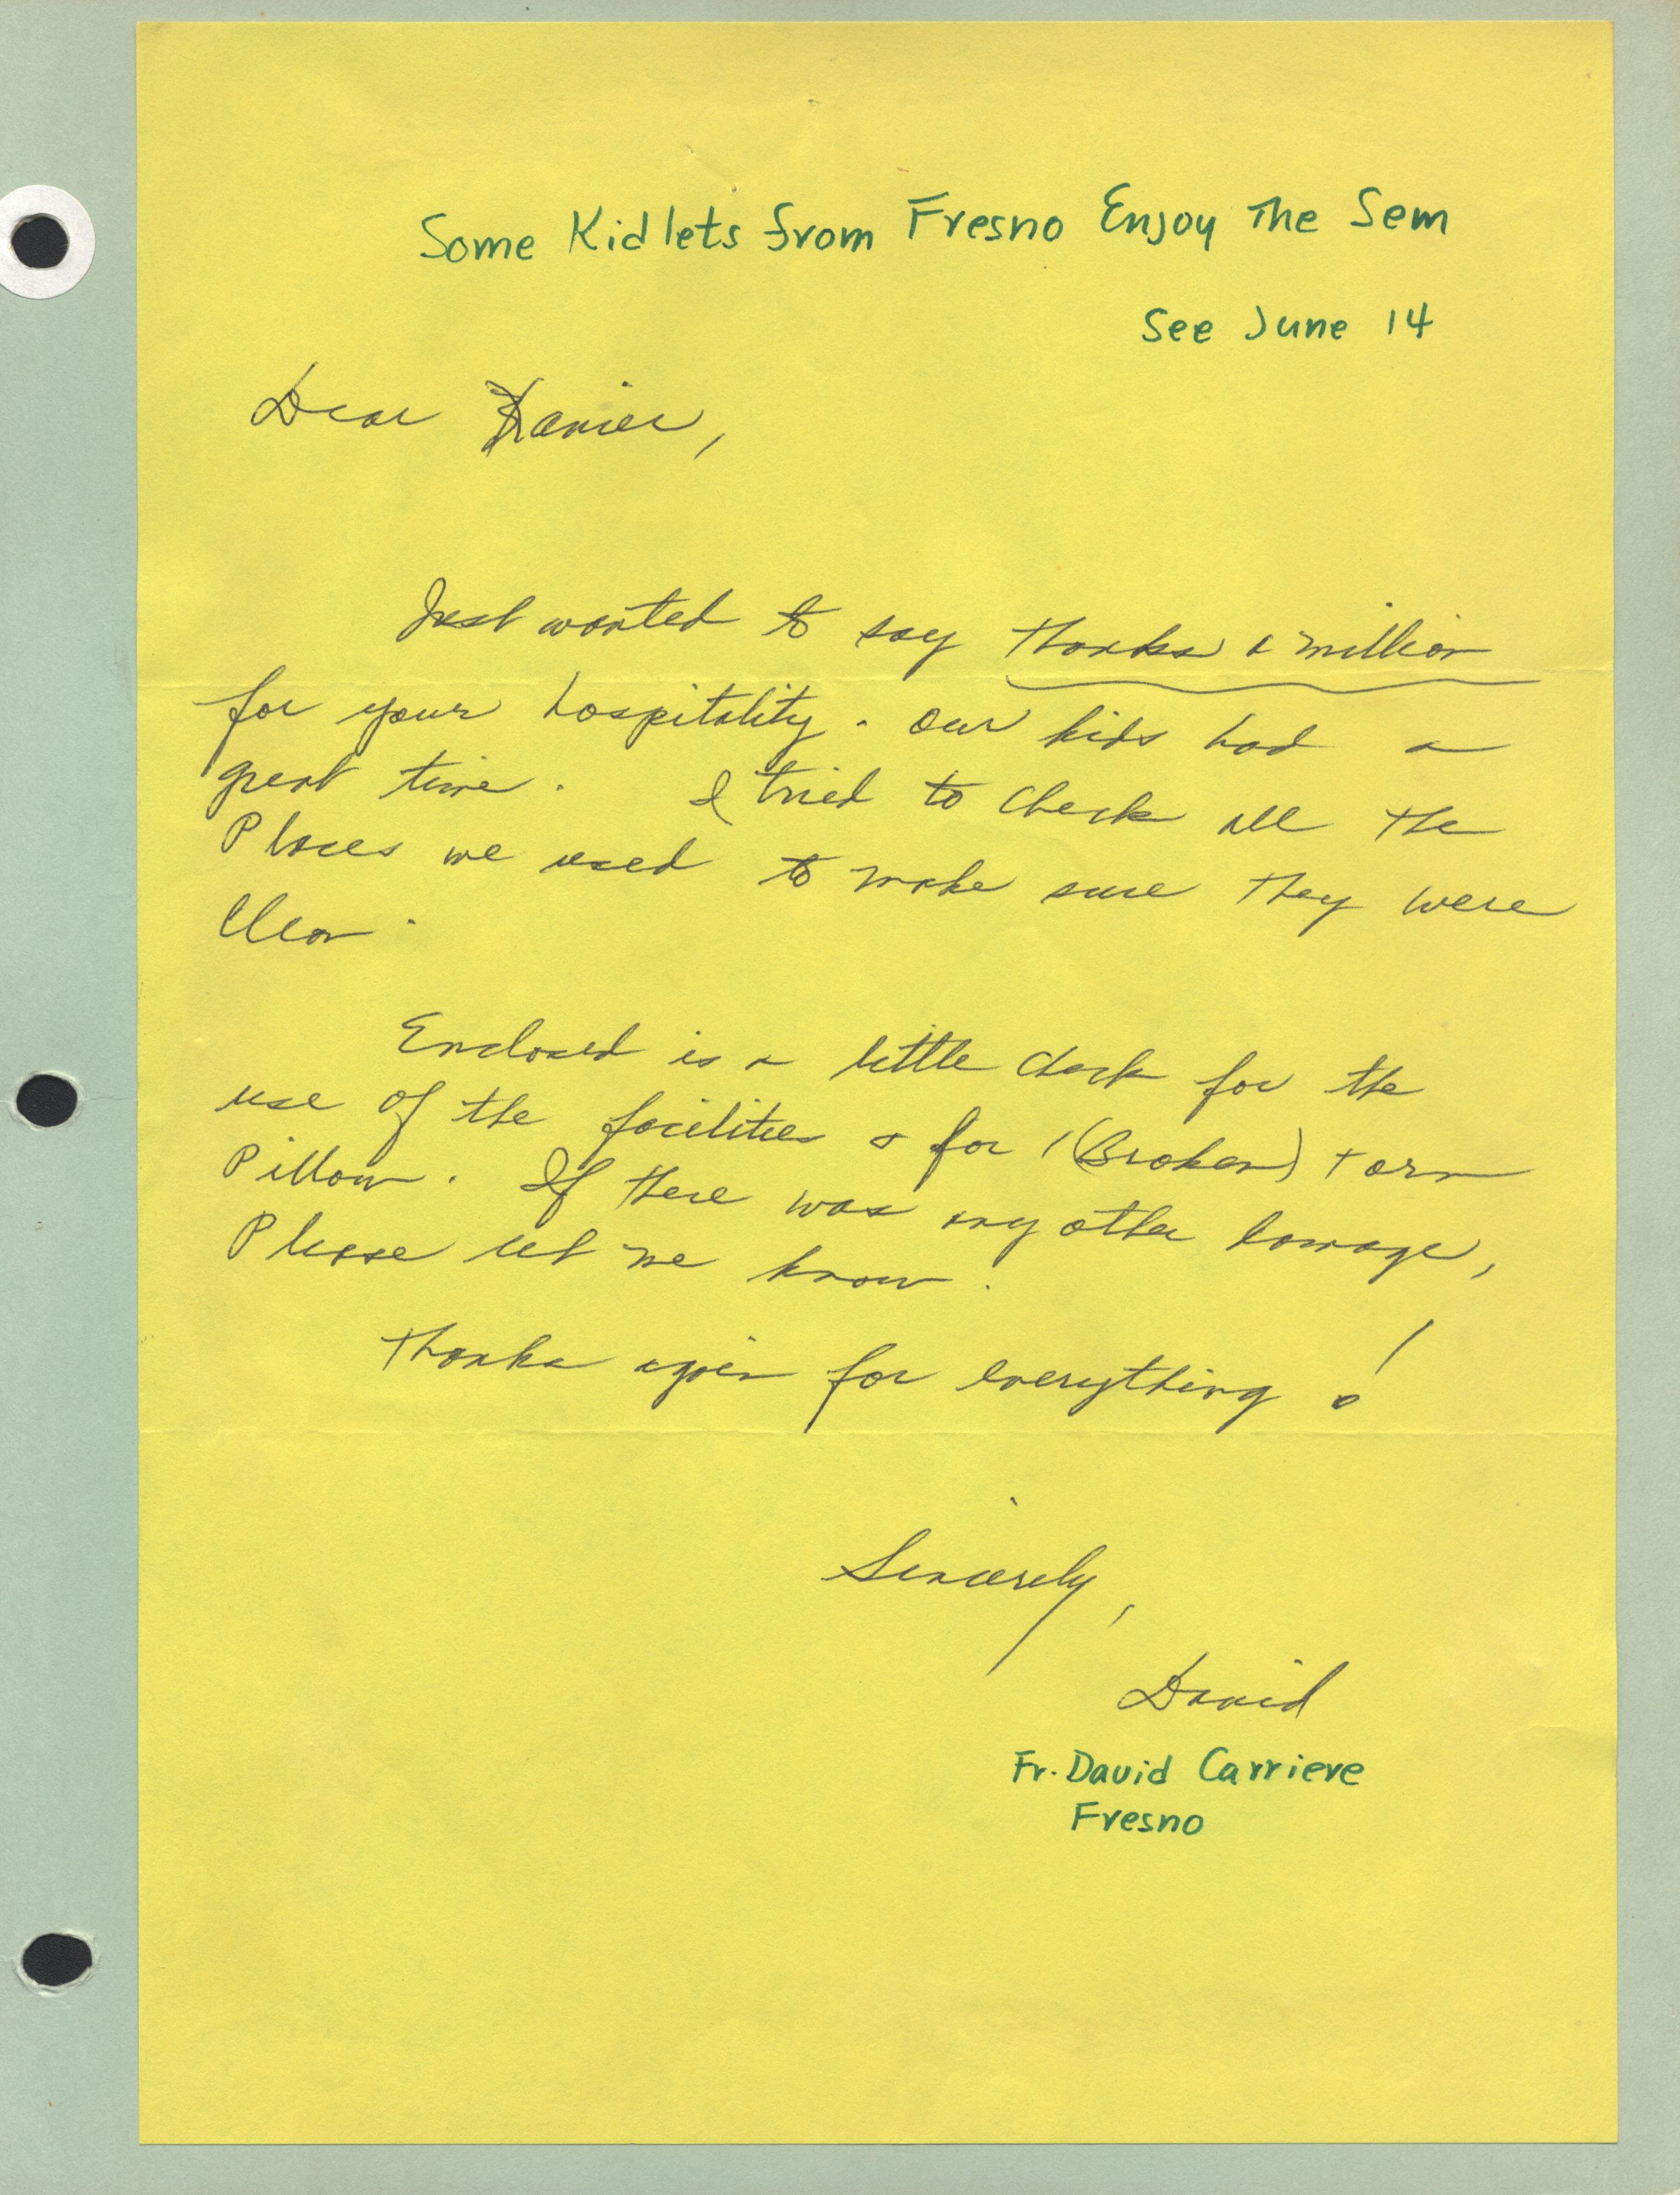 Some Kidlets from Fresno Enjoy The Sem
See June 14
Dear Xavier,
Just wanted to say thanks a million
for your hospitality. Our kids had a
great time. I tried to check all the
Places we used to make sure they were
clean.
Enclosed is a little check for the
use of the facilities & for (Broken) torn
Pillow. If there was any other damage,
Please let me know.
Thanks again for everything!
Sincerely,
David
Fr. David Carriere
Fresno